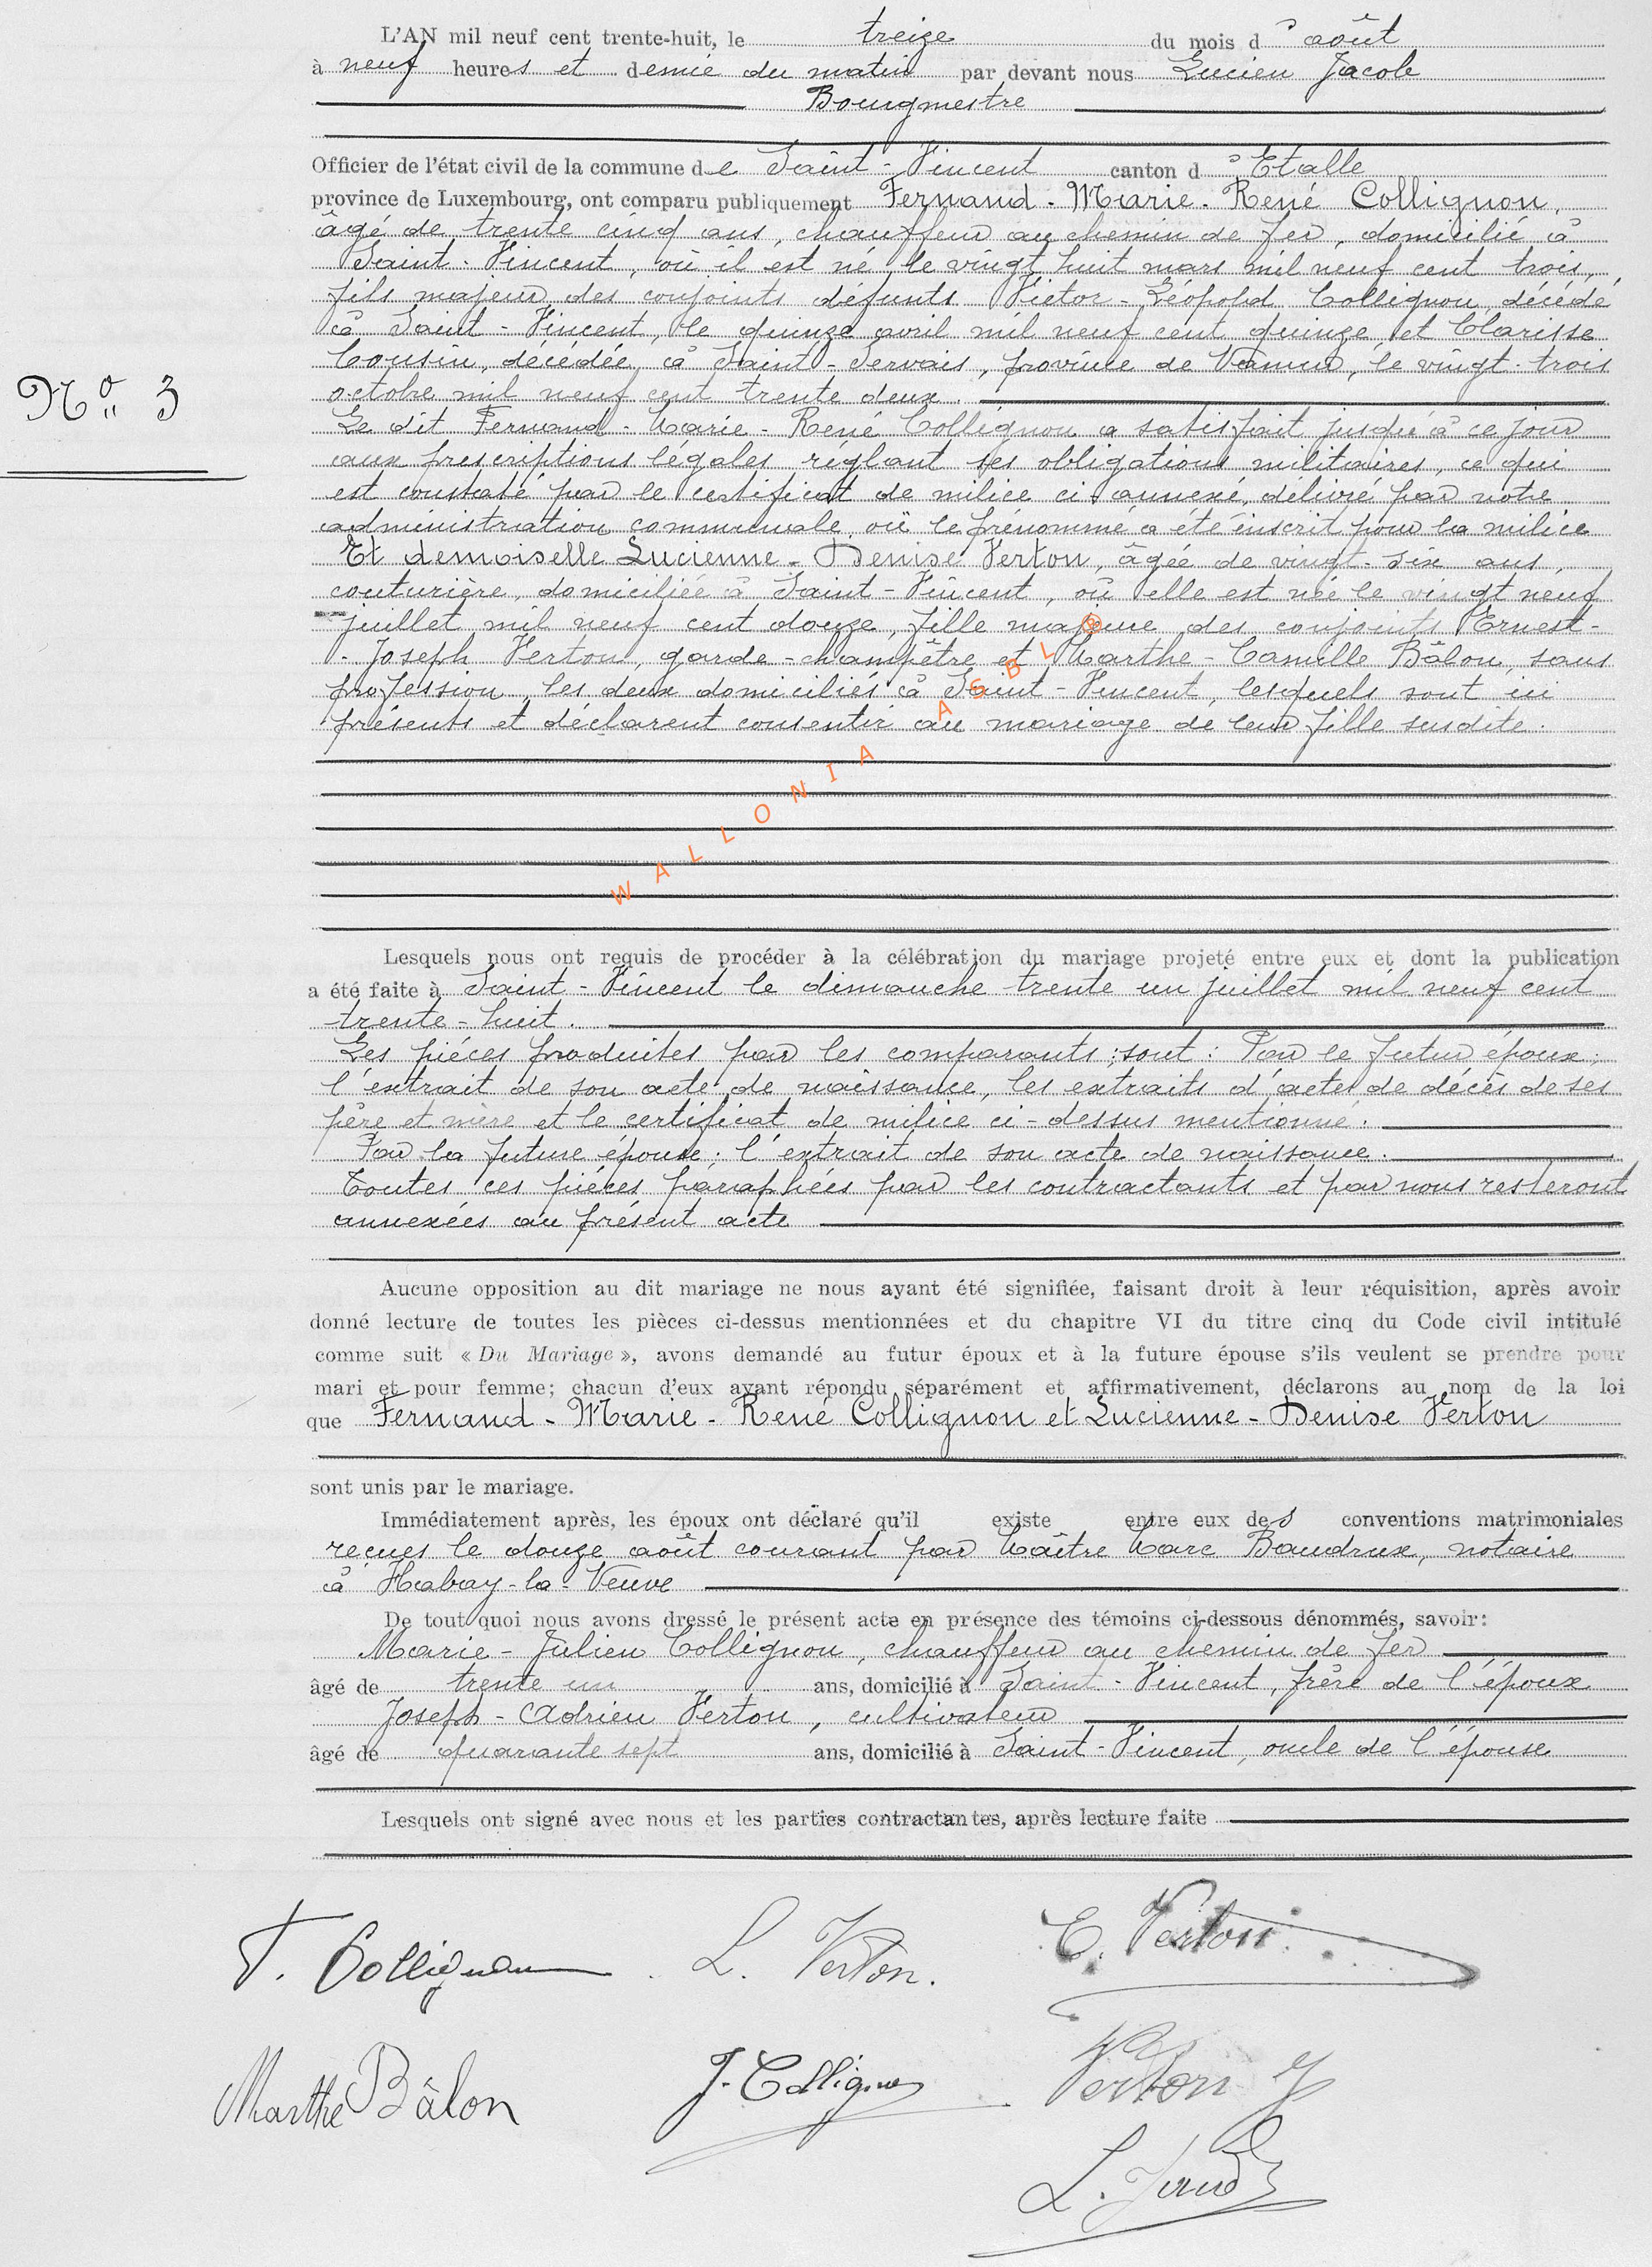 L'AN mil neuf cent trente-huit, le treize du mois d'août
à neuf heures et demie du matin par devant nous Lucien Jacob
Bourgmestre
Officier de l'état civil de la commune de Saint-Vincent canton d'Etalle
province de Luxembourg, ont comparu publiquement Fernand-Marie-René Collignon,
âgé de trente cinq ans, chauffeur au chemin de fer, domicilié à
Saint-Vincent, où il est né, le vingt huit mars mil neuf cent trois,
fils majeur des conjoints défunts Victor-Léopold Collignon, décédé
à Saint-Vincent, le quinze avril mil neuf cent quinze, et Clarisse
Cousin, décédée à Saint-Servais, province de Namur, le vingt-trois
octobre mil neuf cent trente deux.
N° 3
Le dit Fernand-Marie-René Collignon a satisfait jusqu'à ce jour
aux prescriptions légales réglant ses obligations militaires, ce qui
est constaté par le certificat de milice ci-annexé, délivré par notre
administration communale où le prénommé a été inscrit pour la milice
Et demoiselle Lucienne-Denise Verton, âgée de vingt-six ans,
couturière, domiciliée à Saint-Vincent, où elle est née le vingt neuf
juillet mil neuf cent douze, fille majeure des conjoints Ernest-
Joseph Verton, garde-champêtre et Marthe-Camille Bâlon, sans
profession, les deux domiciliés à Saint-Vincent, lesquels sont ici
présents et déclarent consentir au mariage de leur fille susdite.
WALLONIA ASBL ®
Lesquels nous ont requis de procéder à la célébration du mariage projeté entre eux et dont la publication
a été faite à Saint-Vincent le dimanche trente un juillet mil neuf cent
trente-huit.
Les pièces produites par les comparants; sont: Pour le futur époux;
l'extrait de son acte de naissance, les extraits d'actes de décès de ses
père et mère et le certificat de milice ci-dessus mentionné.
Pour la future épouse; l'extrait de son acte de naissance.
Toutes ces pièces paraphées par les contractants et par nous resteront
annexées au présent acte
Aucune opposition au dit mariage ne nous ayant été signifiée, faisant droit à leur réquisition, après avoir
donné lecture de toutes les pièces ci-dessus mentionnées et du chapitre VI du titre cinq du Code civil intitulé
comme suit « Du Mariage », avons demandé au futur époux et à la future épouse s'ils veulent se prendre pour
mari et pour femme; chacun d'eux ayant répondu séparément et affirmativement, déclarons au nom de la loi
que Fernand-Marie-René Collignon et Lucienne-Denise Verton
sont unis par le mariage.
Immédiatement après, les époux ont déclaré qu'il existe entre eux des conventions matrimoniales
reçues le douze août courant par Maître Marc Baudrux, notaire
à Habay-la-Neuve
De tout quoi nous avons dressé le présent acte en présence des témoins ci-dessous dénommés, savoir:
Marie-Julien Collignon, chauffeur au chemin de fer
âgé de trente un ans, domicilié à Saint-Vincent, frère de l'époux
Joseph-Adrien Verton, cultivateur
âgé de quarante sept ans, domicilié à Saint-Vincent, oncle de l'épouse
Lesquels ont signé avec nous et les parties contractantes, après lecture faite
F. Collignon L. Verton. E. Verton
Marthe Bâlon J. Collignon Verton J
L. Jacob